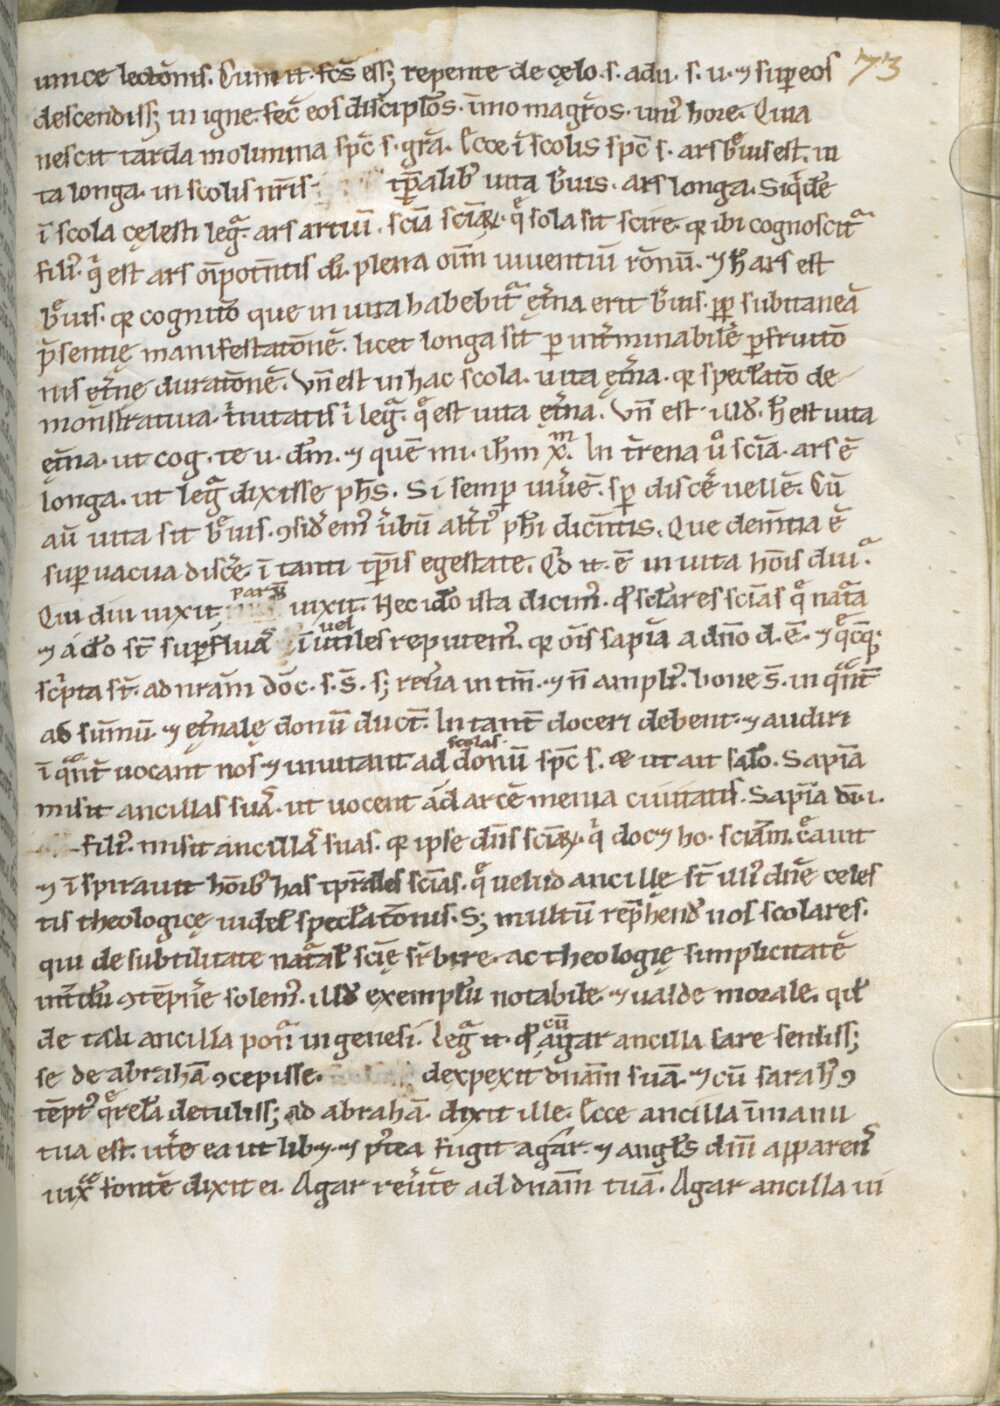 unice lectōnis. Cum .n. fc̄s ess; repente de cęlo .s. adu. s. u. ⁊ super eos 73
descendiss; in igne. fec̄ eos discipl̄os. īmo magr̄os. uni᾿ hore. Quia
nescit tarda molimina spc̄ s. gr̄a. Ecce ī scolis spc̄ s. ars b̆uis est. ui
ta longa. in scolis nr̄is. tp̄alib᾿ uita b̆uis. ars longa. Siqͥdē
ī scola cęlesti legͣ. ars artiū. sciā sciāꝝ. q̄ sola sit scire. qr ibi cognoscitᷓ
fili᾿. qͥ est ars oīpotn̄tis dī. plena oīm uiuentiū rōnū. ⁊ h̄ ars est
b̆uis. qr cognitō que in uita habebitᷓ ęt̄na erit b̆uis. ꝓp subitaneā
p̄sentię manifestatōnē. licet longa sit ꝑ int̄minabilē ꝑfruitō
nis ęt̄nę duratōnē. Vn̄ est in hac scola. uita ęt̄na. qr specl̄atō de
monstratiua. t̄nitatis ī legͣ. q̄ est uita ęt̄na. Vn̄ est illď. h̄ est uita
ęt̄na. ut cog. te u. dm̄. ⁊ quē mi. ihm̄ x̄m. In t̄rena uͦ sciā. ars ē
longa. ut legͣ dixisse ph̄s. Si semꝑ uiuē. sꝑ discē uellē. Cū
aū uita sit b̆uis. ꝯsid̄em᾿ ūbū alt̄i᾿ ph̄i dicn̄tis. Que demn̄tia ē
suꝑuacua discē. ī tanti tp̄is egestate. Qď .n. ē in uita hoīs diuͣ.
Qui diu uixit, parū uixit. Hec ido ista dicim᾿. qͥ scl̄ares scīas q̄ natᷓa
⁊ a dō st̄ suꝑfluaᷤ uel īutiles reputem᾿. qr oīs sapīa a dn̄o d. ē. ⁊ q̄cq;
sc̄pta st̄. ad nrām dōc. s. s̄. s; rel̄ia in tm̄. ⁊ n̄ ampli᾿. bone s̄. in qᷓnt̄
ad sūmū ⁊ ęt̄nalę donū ducn̄t. In tant̄ doceri debent. ⁊ audiri
ī qᷓnt̄ uocant nos ⁊ inuitant ad scolas donū spc̄ s. & ut ait salō. Sapīa
misit ancillas suaᷤ. ut uocent ad arcē menia ciuitatis. Sapīa dī .i.
fili᾿. misit ancillaᷤ suas. qr ipse dn̄s sciāꝝ. qͥ doc⁊ ho. sciam̄. c̄auit
⁊ īspirauit hoīb᾿ has tp̄rales scīas. q̄ uelud ancillę st̄ illi᾿ dn̄e celes
tis theologicę uidel᾿ specl̄atōnis. S; multū rep̄hend᾿ nos scolares.
qui de subtilitate natᷓal᾿ scīę sc̄bire. ac theologię simplicitatē
int̄dū ꝯtēpn̄e solem᾿. illď exempl̄u notabile. ⁊ ualde morale. qd᾿
de tali ancilla ponͣ in genesi. Legͣ .n. qͥ cū agar ancilla sare sensiss;
se de abrahā ꝯcepisse. dexpexit dnām suā. ⁊ cū sarah ꝯ
tēpt᾿ qᷓrel̄a detuliss; ad abrahā. dixit ille. Ecce ancilla ī manu
tua est. ut̄e ea ut lib⁊. ⁊ p᾿tea fugit agar. ⁊ angl̄s dn̄i apparenᷤ
iuxͣ fontē dixit ei. Agar reūte ad dnām tuā. Agar ancilla ui